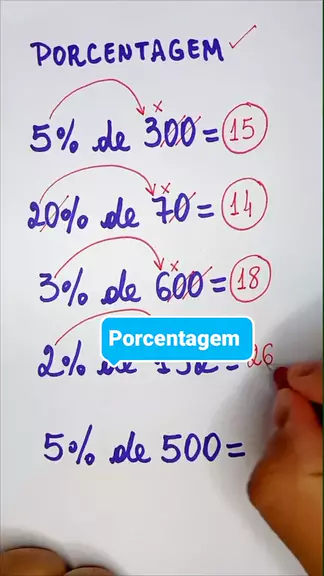 PORCENTAGEM
5% de 300 = 15
20% de 70 = 14
3% de 600 = 18
Porcentagem
2% de = 26
5% de 500 =